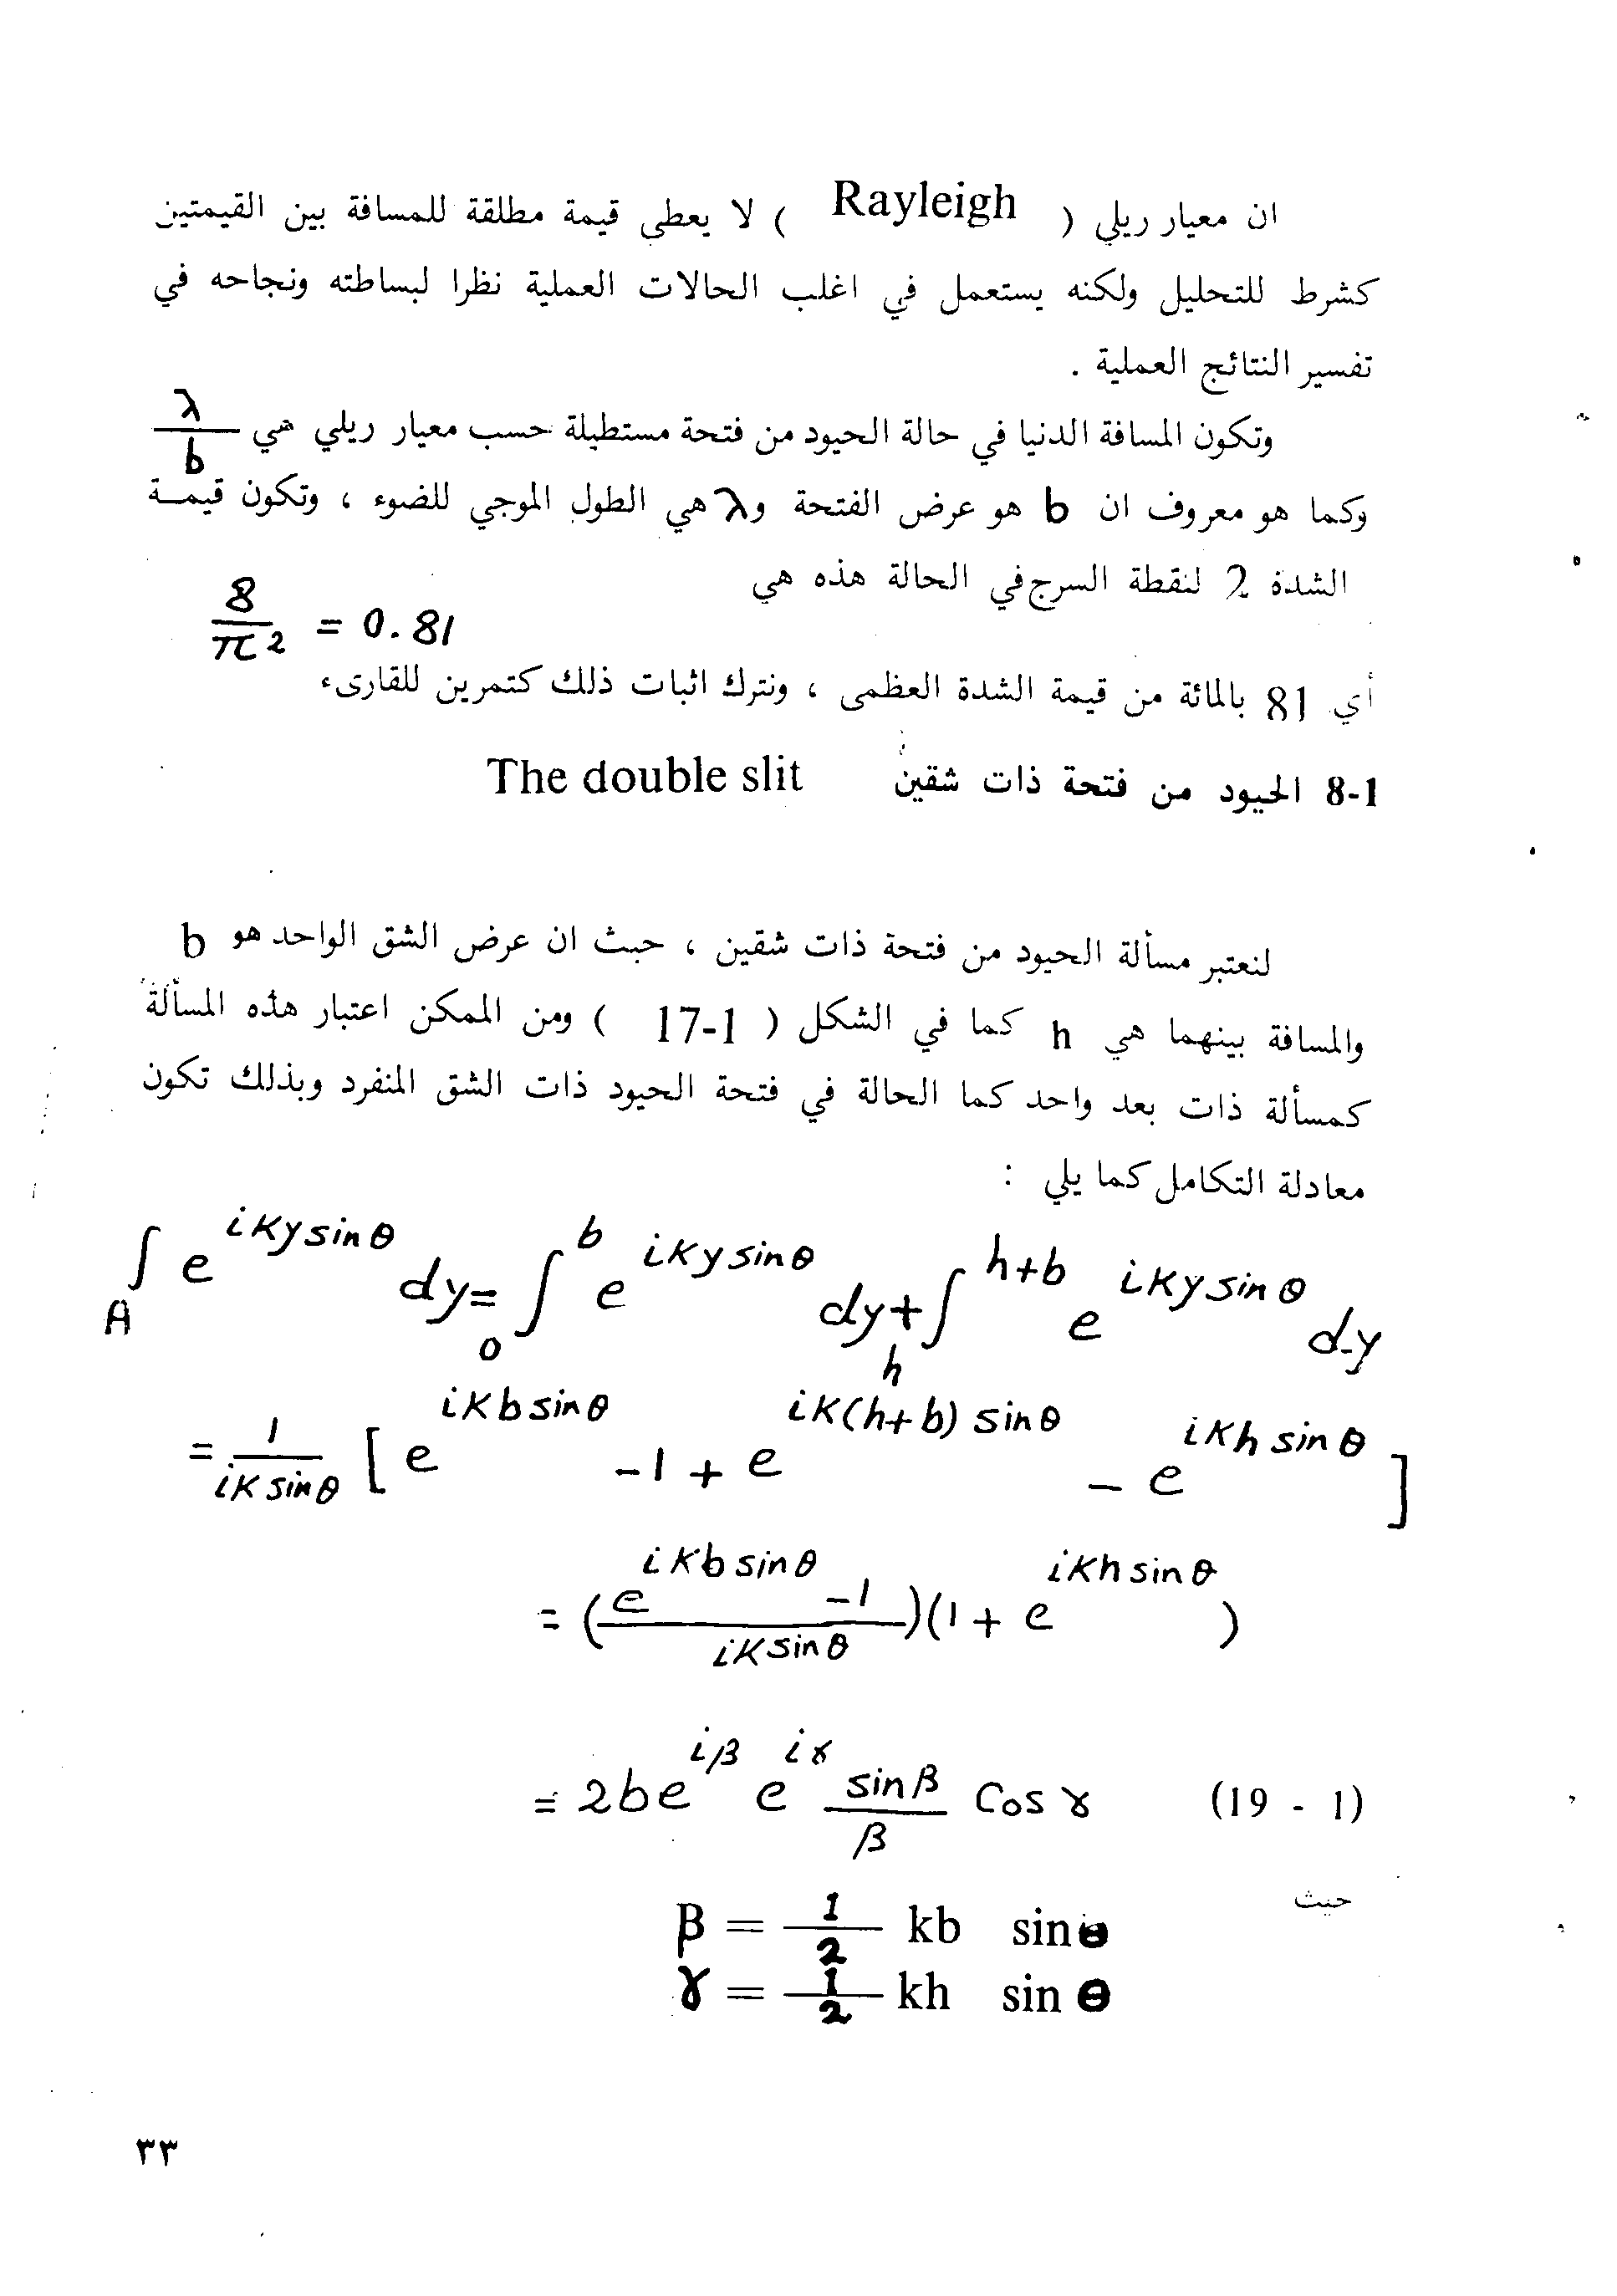 ان معيار ريلي ( Rayleigh ) لا يعطي قيمة مطلقة للمسافة بين القيمتين
كشرط للتحليل ولكنه يستعمل في اغلب الحالات العملية نظرا لبساطته ونجاحه في
تفسير النتائج العملية .
وتكون المسافة الدنيا في حالة الحيود من فتحة مستطيلة حسب معيار ريلي هي λ/b
وكما هو معروف ان b هو عرض الفتحة و λ هي الطول الموجي للضوء ، وتكون قيمة
الشدة 2 لنقطة السرج في الحالة هذه هي
8/π² = 0.81
أي 81 بالمائة من قيمة الشدة العظمى ، ونترك اثبات ذلك كتمرين للقارىء
8-1 الحيود من فتحة ذات شقين The double slit
لنعتبر مسألة الحيود من فتحة ذات شقين ، حيث ان عرض الشق الواحد هو b
والمسافة بينهما هي h كما في الشكل ( 17-1 ) ومن الممكن اعتبار هذه المسألة
كمسألة ذات بعد واحد كما الحالة في فتحة الحيود ذات الشق المنفرد وبذلك تكون
معادلة التكامل كما يلي :
∫_A e^{iky sinθ} dy = ∫_0^b e^{iky sinθ} dy + ∫_h^{h+b} e^{iky sinθ} dy
= 1/(ik sinθ) [ e^{ikb sinθ} - 1 + e^{ik(h+b) sinθ} - e^{ikh sinθ} ]
= ((e^{ikb sinθ} - 1)/(ik sinθ))(1 + e^{ikh sinθ})
= 2b e^{iβ} e^{iγ} (sinβ/β) Cos γ (19 - 1)
حيث
β = 1/2 kb sin θ
γ = 1/2 kh sin θ
٣٣